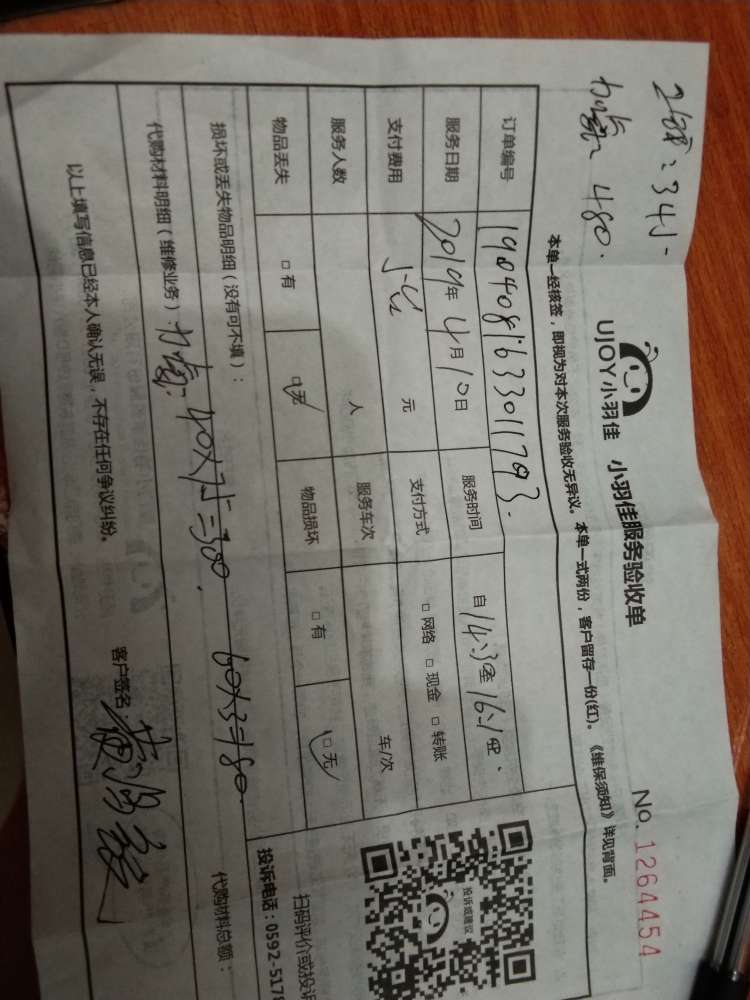 345.
480.
UJOY小羽佳 小羽佳服务验收单
No. 1264454
本单一经核签，即视为对本次服务验收无异议。本单一式两份，客户留存一份(红)。《维保须知》详见背面。
订单编号 1904081633011793.
服务日期 2019年4月10日 服务时间 自14:30至16:10.
支付费用 元 支付方式 □网络 □现金 □转账
服务人数 人 服务车次 车/次
物品丢失 □有 □无 物品损坏 □有 □无
投诉或建议
扫码评价或投诉
投诉电话：0592-5178
损坏或丢失物品明细（没有可不填）：
代购材料明细（维修业务）： 40×7.5=300. 60×3=180. 代购材料总额：
以上填写信息已经本人确认无误，不存在任何争议纠纷。 客户签名